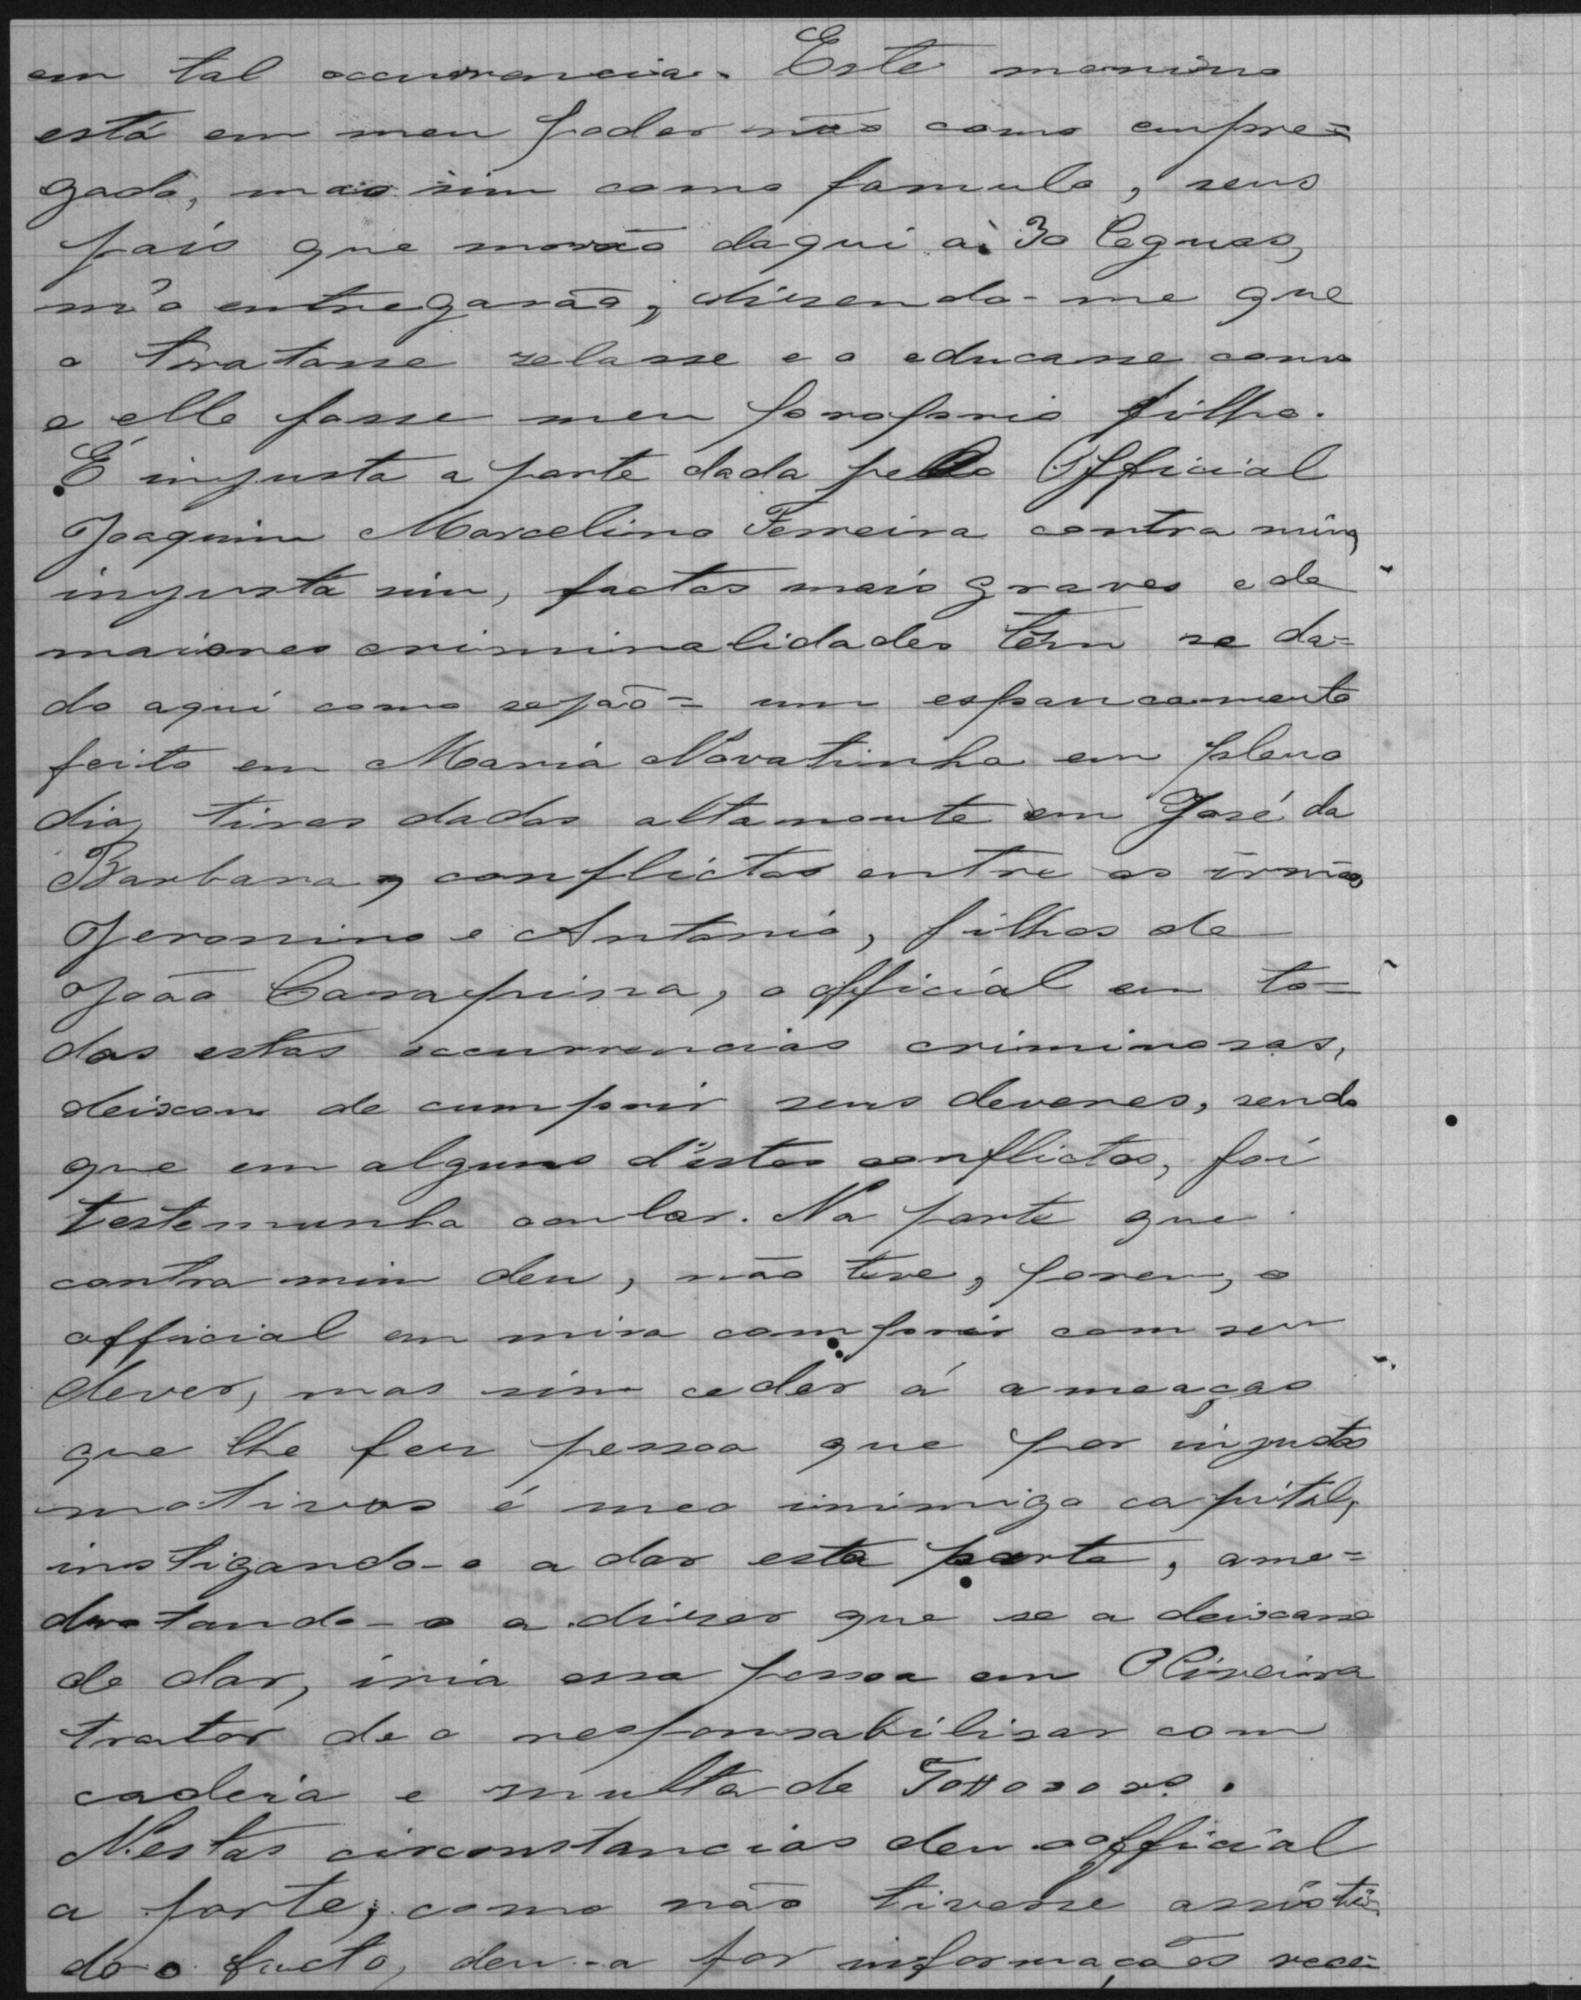 em tal occurrencia. Este menino
está em meu poder não como empre=
gado, mas sim como famulo, seus
pais que morão daqui à 30 leguas,
m'o entregarão, disendo-me que
o tratasse zelasse e o educasse como
e elle fosse meu proprio filho.
É injusta a parte dada pelo Official
Joaquim Marcelino Ferreira contra mim,
injusta sim, factos mais graves e de
maiores criminalidades têm se da=
do aqui como sejão= um espancamento
feito em Maria Novatinha em pleno
dia, tiros dados altamente em José da
Barbara, conflictos entre os irmãos
Jeronimo e Antonio, filhos de
João Carapina, o official em to=
das estas occurrencias criminosas,
deixou de cumprir seus deveres, sendo
que em alguns d'estes conflictos, foi
testemunha ocular. Na parte que
contra mim deu, não teve, porem, o
official em mira comprir com seu
dever, mas sim ceder á ameaças
que lhe fez pessoa que por injustos
motivos é meo inimigo capital,
instigando-o a dar esta parte, ame=
drotando-o a diser que se a deixasse
de dar, iria essa pessoa em Oliveira
tratar de o responsabilisar com
cadeia e multa de
Nestas circonstancias deu o official
a parte; como não tivesse assisti=
do o facto, deu-a por informações rece=